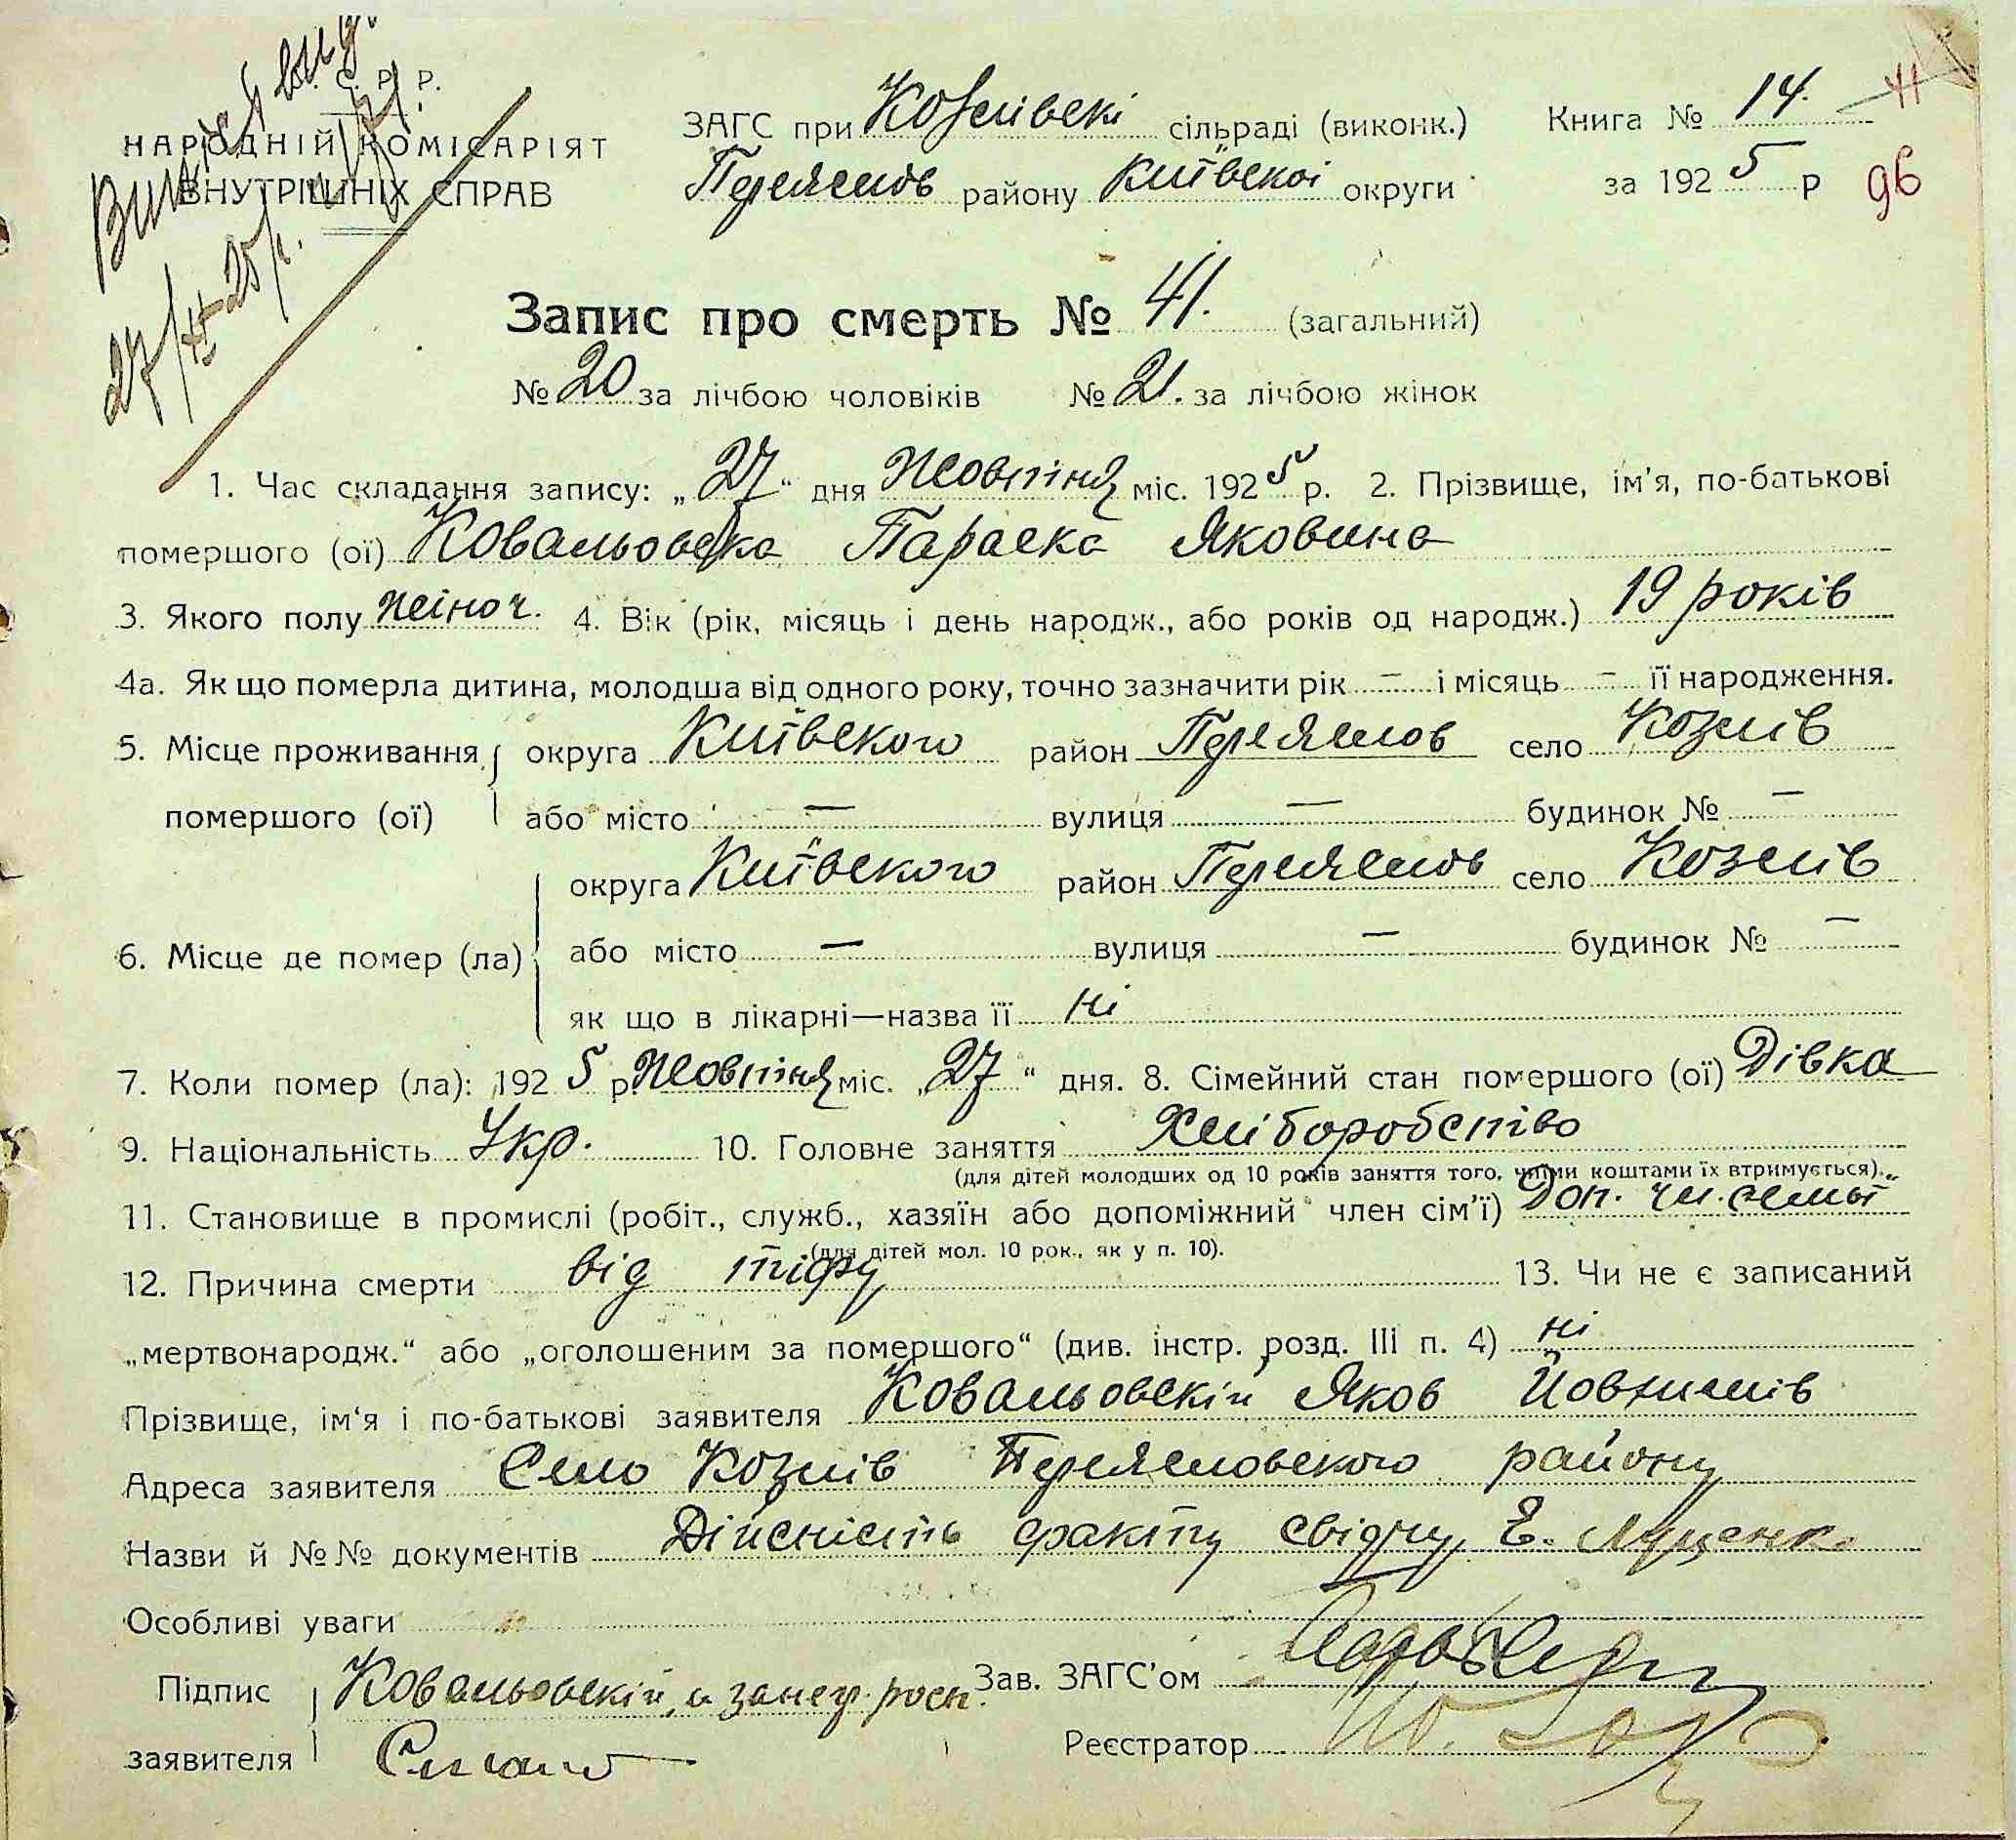 С. Р. Р.
НАРОДНІЙ КОМІСАРІЯТ
ВНУТРІШНІХ СПРАВ
27/XI 25 р.
ЗАГС при Козлівскі сільраді (виконк.)
Переяслов району Київскоі округи
Книга № 14. 41
за 1925 р 96
Запис про смерть № 41. (загальний)
№ 20 за лічбою чоловіків № 21. за лічбою жінок
1. Час складання запису: „27“ дня Жовтня міс. 1925 р. 2. Прізвище, ім'я, по-батькові
помершого (ої) Ковальовска Параска Яковина
3. Якого полу жіноч. 4. Вік (рік, місяць і день народж., або років од народж.) 19 років
4а. Як що померла дитина, молодша від одного року, точно зазначити рік – і місяць – її народження.
5. Місце проживання округа Київского район Переяслов село Козлів
помершого (ої) або місто — вулиця — будинок № —
округа Київского район Переяслов село Козлів
6. Місце де помер (ла) або місто — вулиця — будинок № —
як що в лікарні—назва її ні
7. Коли помер (ла): 1925 р. Жовтня міс. „27“ дня. 8. Сімейний стан помершого (ої) Дівка
9. Національність Укр. 10. Головне заняття Хліборобство
(для дітей молодших од 10 років заняття того, чиїми коштами їх втримується).
11. Становище в промислі (робіт., служб., хазяїн або допоміжний член сім'ї) Доп. чл. семьї
(для дітей мол. 10 рок., як у п. 10).
12. Причина смерти від тіфу 13. Чи не є записаний
„мертвонародж.“ або „оголошеним за помершого“ (див. інстр. розд. III п. 4) ні
Прізвище, ім'я і по-батькові заявителя Ковальовскій Яков
Адреса заявителя Село Козлів Переясловского району
Назви й №№ документів Дійсність факту свідчу Е. Луценко
Особливі уваги
Підпис Ковальовскій, а
заявителя
Зав. ЗАГС'ом
Реєстратор